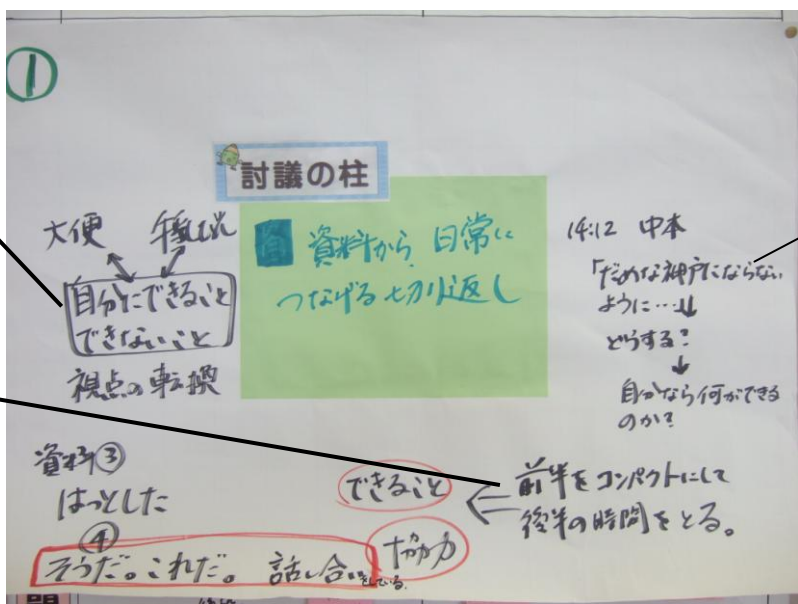 ①
討議の柱
資料から 日常に
つなげる切り返し
大便
自分にできること
できないこと
視点の転換
14:12 中本
「だめな神戸にならない
ように…」
どうする？
自分なら何ができる
のか？
資料③
はっとした
④
そうだ。これだ。 話し合いをしている。
できること
協力
前半をコンパクトにして
後半の時間をとる。